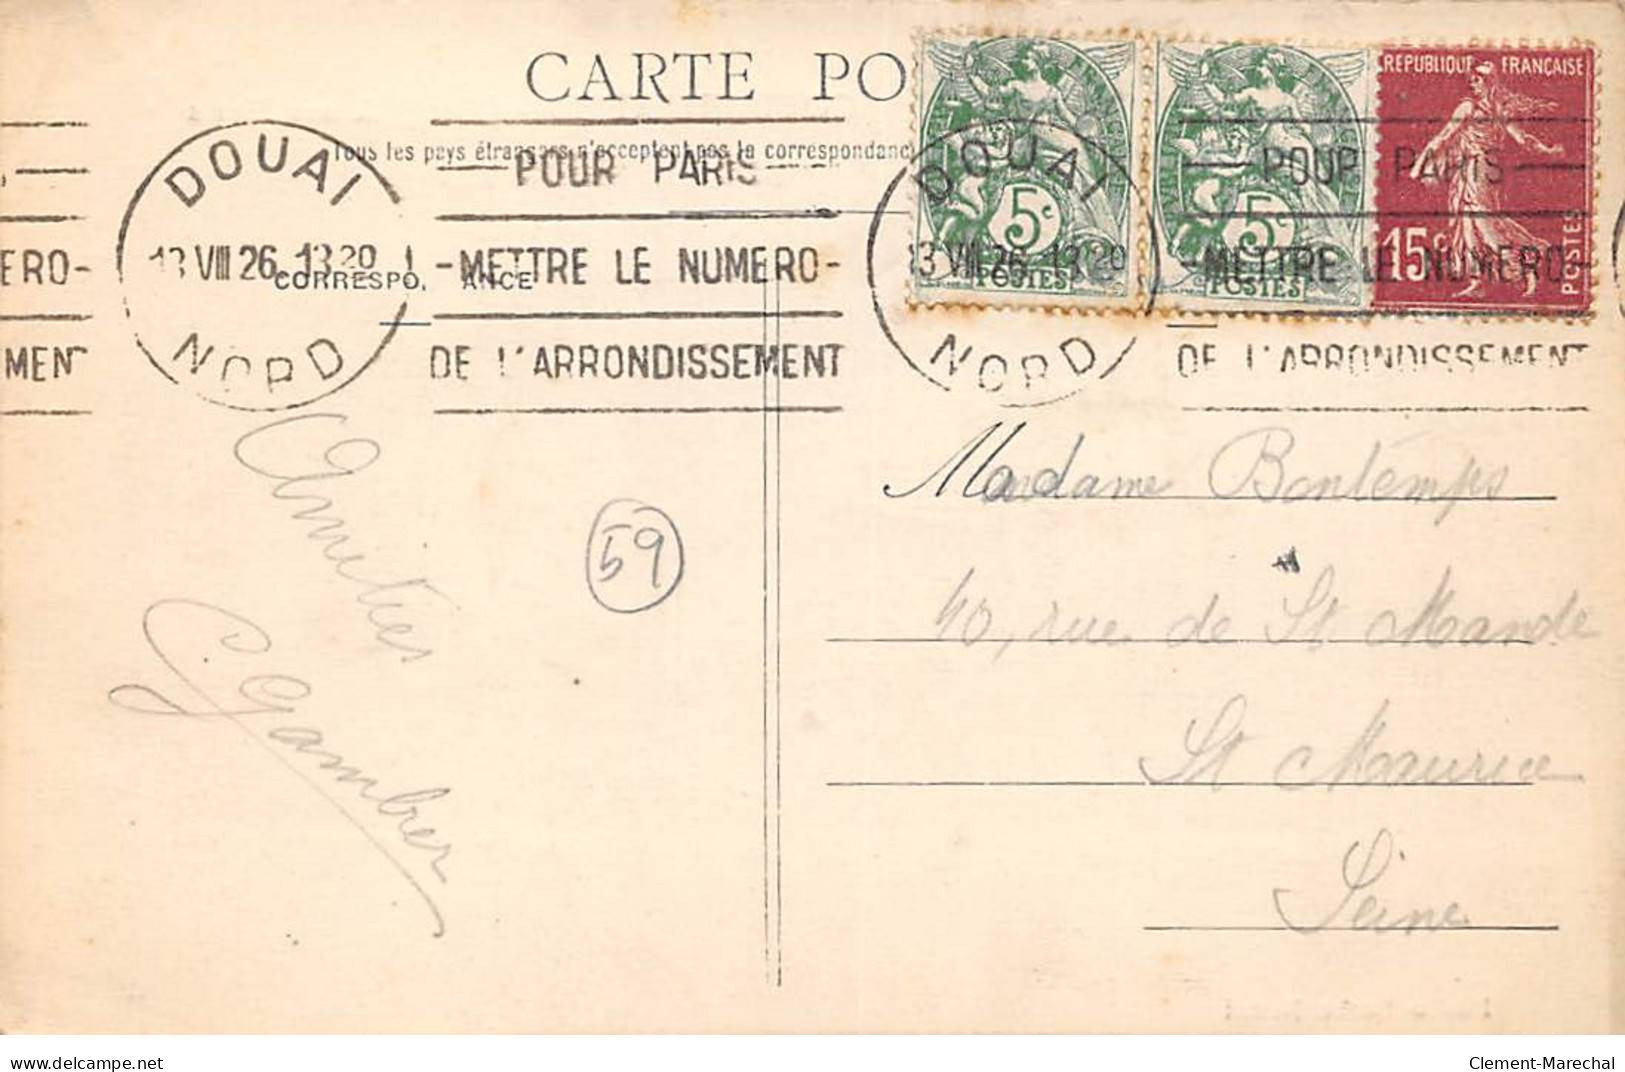 CARTE PO
Tous les pays étrangers n'acceptent pas la correspondanc
CORRESPO ANCE
DOUAI
13 VIII 26 13 20
NORD
POUR PARIS
METTRE LE NUMERO
DE L'ARRONDISSEMENT
ERO-
MEN
DOUAI
13 VIII 26 13 20
NORD
POUR PARIS
METTRE LE NUMERO
DE L'ARRONDISSEMENT
5c
POSTES
5c
POSTES
REPUBLIQUE FRANÇAISE
15c
POSTES
Amitiés
Gamber
59
Madame Bontemps
40, rue de St Mande
St Maurice
Seine
www.delcampe.net
Clement-Marechal